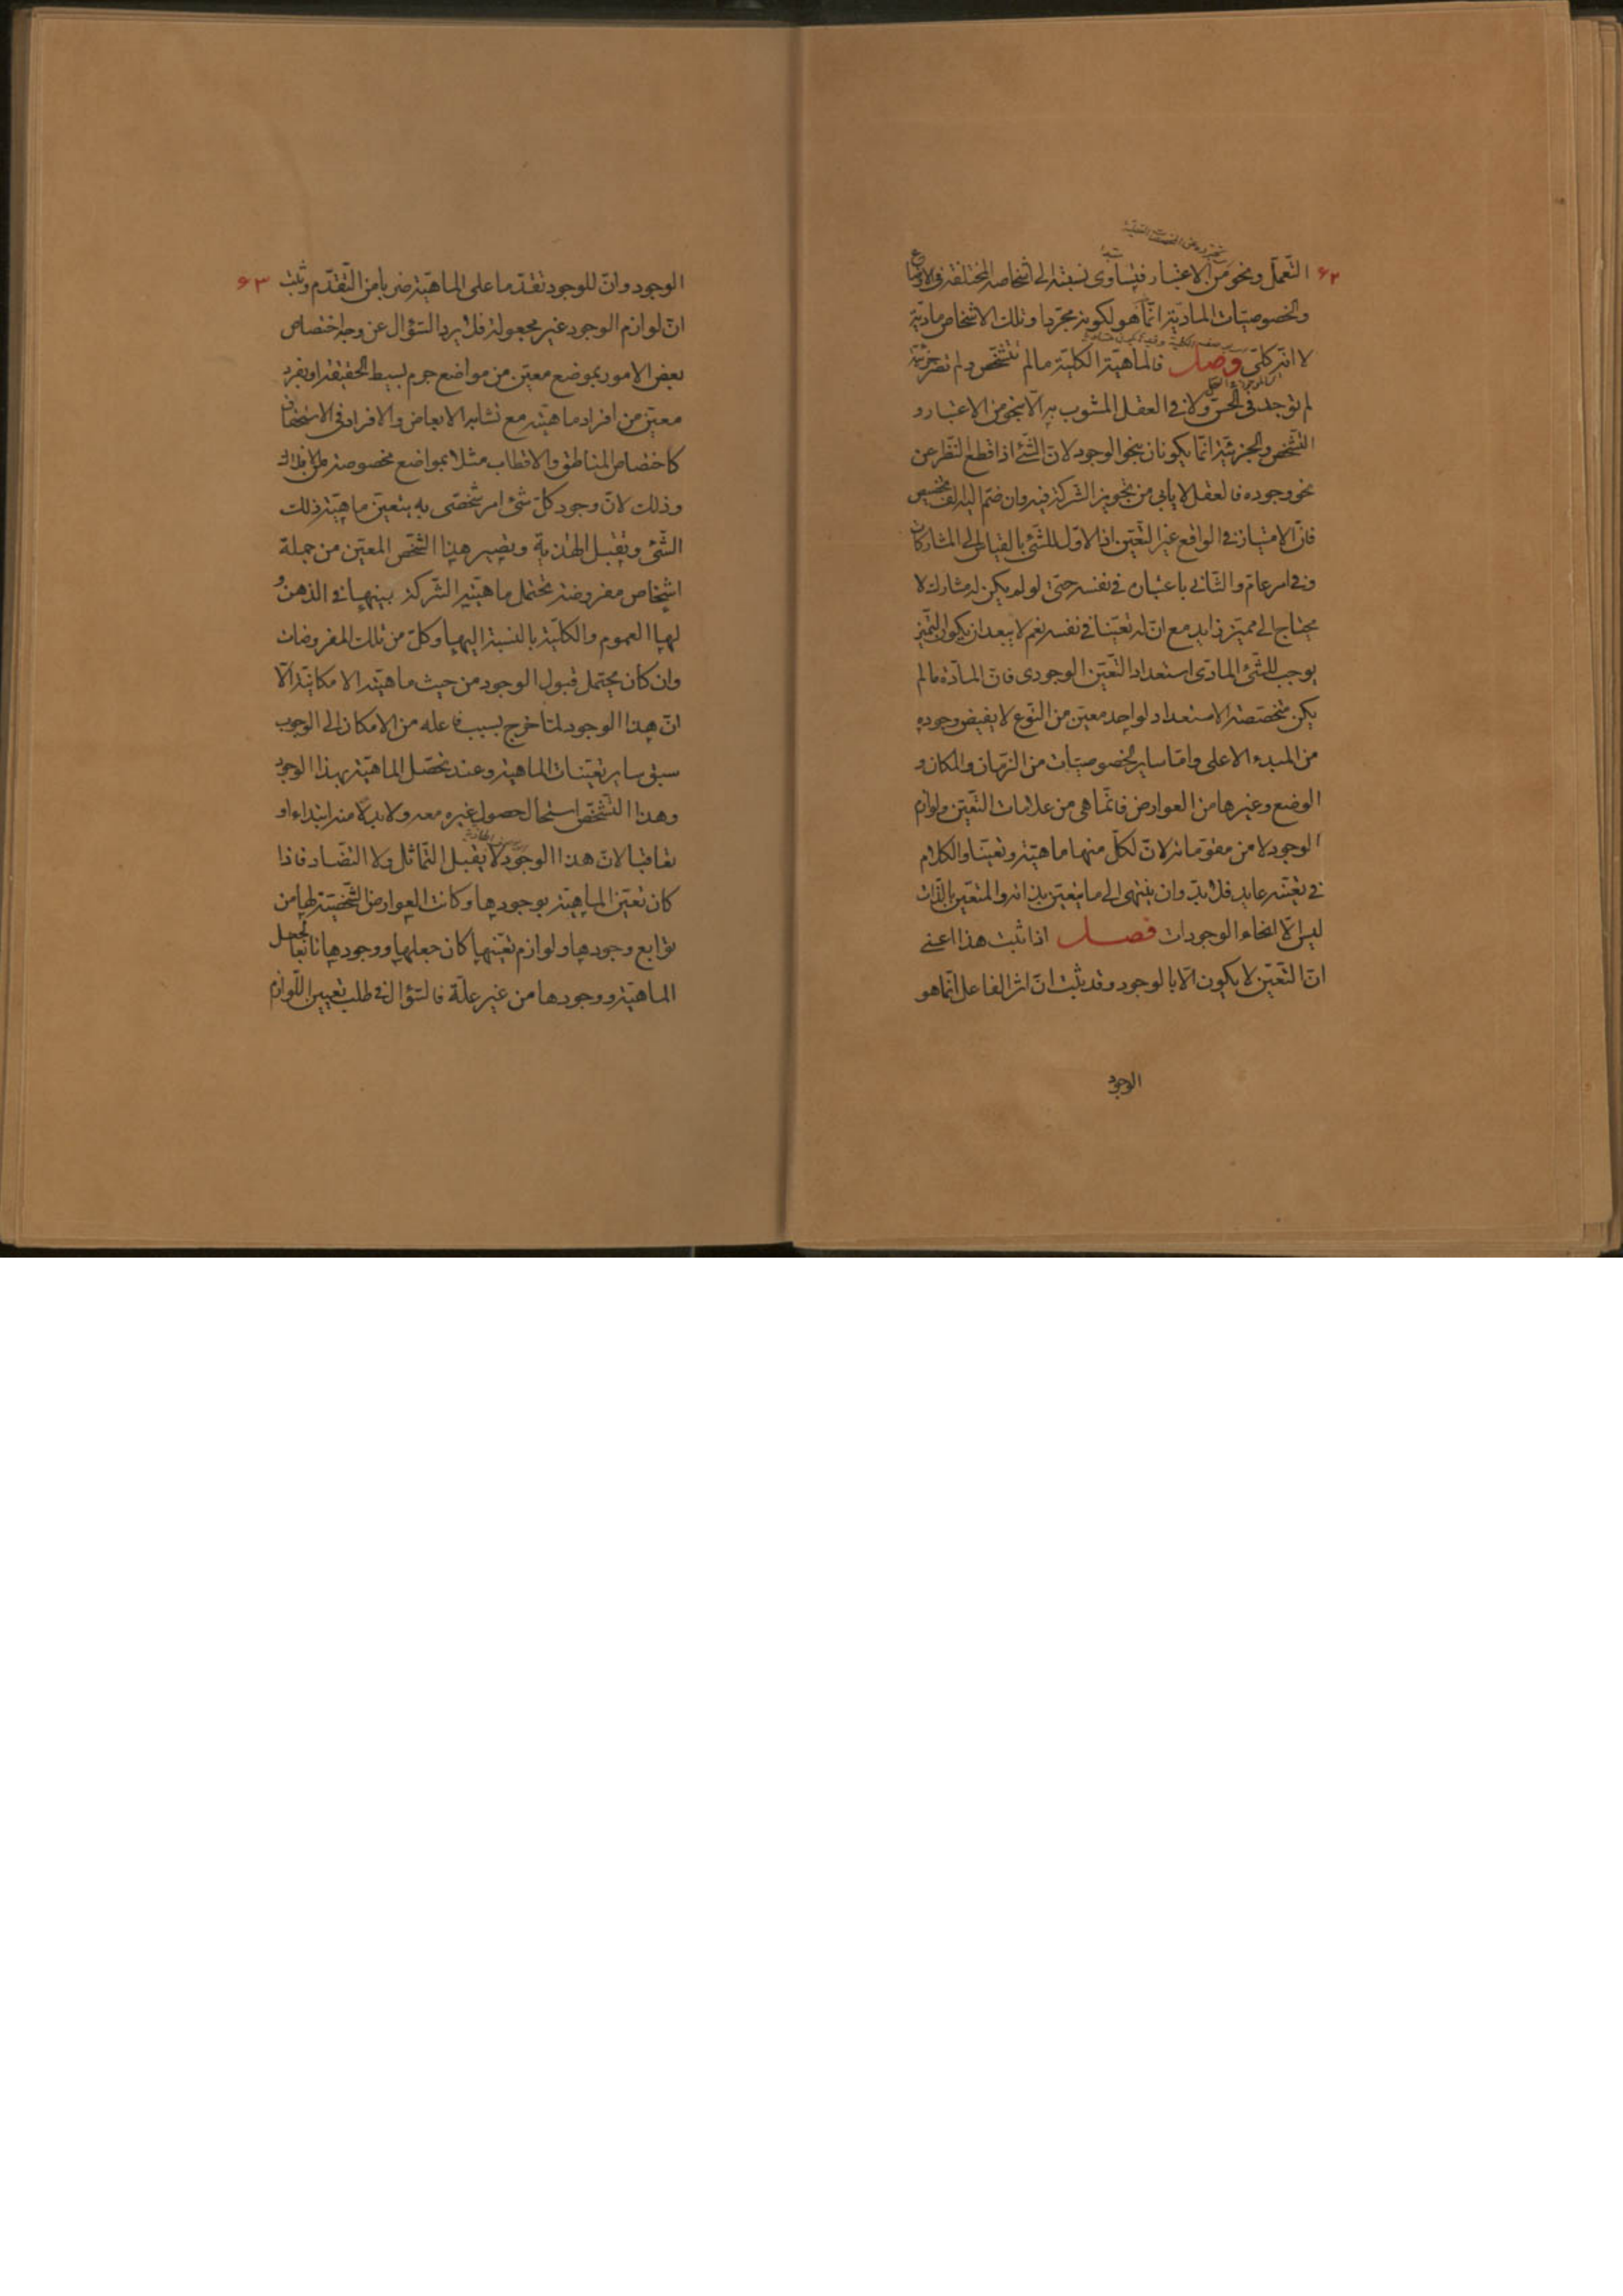 ٦٢
التّعمّل ونحو من الاعتبار فيتساوى نسبته الى اشخاصه المختلفة فى الاوضاع
والخصوصيّات الماديّة انّما هو لكونه مجرّدا وتلك الاشخاص ماديّة
لا انّه كلّى وصل فالماهيّة الكليّة ما لم تتشخّص ولم تصر جزئيّة
لم توجد فى الحسّ ولا فى العقل المشوب به الّا بنحو من الاعتبار و
التّشخّص والجزئيّة انّما يكونان بنحو الوجود لانّ الشّئ اذا قطع النّظر عن
نحو وجوده فالعقل لا يابى من تجويز الشركة فيه وان ضمّ اليه الف مخصّص
فانّ الامتياز فى الواقع غير التّعيّن اذ الاوّل للشّئ بالقياس الى المشاركات
فى امر عامّ والثّانى باعتباره فى نفسه حتّى لو لم يكن له مشارك لا
يحتاج الى مميّز زايد مع انّ له تعيّنا فى نفسه نعم لا يبعد ان يكون التميّز
يوجب للشّئ المادّى استعداد التّعيّن الوجودى فانّ المادّة ما لم
يكن متخصّصة الاستعداد لواحد معيّن من النّوع لا يفيض وجوده
من المبدء الاعلى وامّا ساير الخصوصيّات من الزّمان والمكان و
الوضع وغيرها من العوارض فانّما هى من علامات التّعيّن ولوازم
الوجود لا من مقوّماته لانّ لكلّ منها ماهيّة وتعيّنا والكلام
فى تعيّنه عايد فلا بدّ وان ينتهى الى ما يتعيّن بذاته والمتعيّن بالذّات
ليس الّا انحاء الوجودات فصل اذا ثبت هذا اعنى
انّ التّعيّن لا يكون الّا بالوجود وقد ثبت انّ اثر الفاعل انّما هو
الوجود
٦٣
الوجود وانّ للوجود تقدّما على الماهيّة ضربا من التّقدّم وثبت
انّ لوازم الوجود غير مجعولة فلا يرد السّؤال عن وجه اختصاص
بعض الامور بموضع معيّن من مواضع جرم بسيط الحقيقة او بفرد
معيّن من افراد ماهيّته مع تشابه الابعاض والافراد فى الاستحقاق
كاختصاص المناطق والاقطاب مثلا بمواضع مخصوصة من الافلاك
وذلك لانّ وجود كلّ شئ امر شخّصى به يتعيّن ماهيّة ذلك
الشّئ ويقبل الهذية ويصير هذا الشّخص المعيّن من جملة
اشخاص مفروضة تحتمل ماهيّته الشّركة بينها فى الذهن و
لها العموم والكليّة بالنسبة اليها وكلّ من تلك المفروضات
وان كان يحتمل قبول الوجود من حيث ماهيّته الامكانيّة الّا
انّ هذا الوجود لمّا خرج بسبب فاعله من الامكان الى الوجوب
سبق ساير تعيّنات الماهية وعند تحصّل الماهيّة بهذا الوجود
وهذا التّشخّص استحال حصول غيره معه ولا بدلا منه ابتداء او
تعاقبا لانّ هذا الوجود لا يقبل التّماثل ولا التضّاد فاذا
كان تعيّن الماهيّة بوجودها وكانت العوارض الشّخصيّة لها من
توابع وجودها ولوازم تعيّنها كان جعلها ووجودها تابعا لجعل
الماهيّة ووجودها من غير علّة فالسّؤال فى طلب تعيين اللّوازم